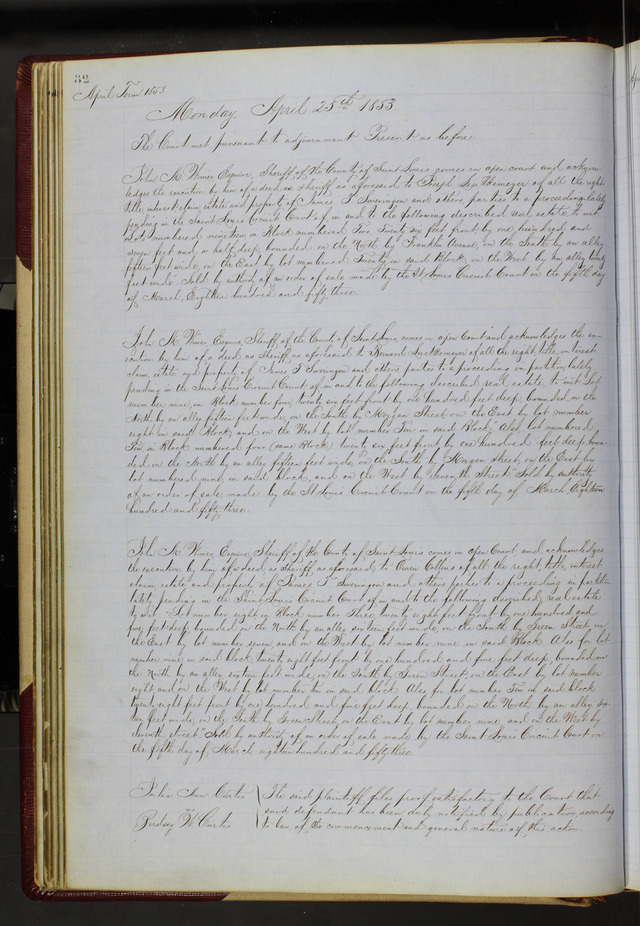 82
April Term 1853
Monday, April 25th 1853
The Court met pursuant to adjournment Present as before
John M Wimer Esquire, Sheriff of the County of Saint Louis comes in open court and acknow
ledges the execution by him of a deed as sheriff, as aforesaid to Joseph of all the right
title, interest claim estate and property of James T Sweringen and others parties to a proceeding lately
pending in the Saint Louis Circuit Court of in and to the following described real estate, to wit
Lot numbered nineteen in Block numbered Two Twenty six feet front by one hundred and
seven feet and a half deep, bounded on the North by Franklin Avenue, on the South by an alley
fifteen feet wide, on the East by lot numbered Twenty in said Block, on the West by an alley twenty
feet wide Sold by authority of an order of sale made by the St Louis Circuit Court on the fifth day
of March, Eighteen hundred and fifty three
John M Wimer, Esquire, Sheriff of the County of Saint Louis, comes in open Court and acknowledges the exe
cution by him of a deed as sheriff as aforesaid to Bernard of all the right, title, interest
claim, estate and property of James T Sweringen and others parties to a proceeding in partition lately
pending in the Saint Louis Circuit Court of in and to the following described real estate, to wit Lot
number nine, in Block number four, twenty six feet front by one hundred feet deep, bounded on the
North by an alley fifteen feet wide, on the South by Morgan Street, on the East by lot number
eight in said Block and on the West by lot number Ten in said Block, Also lot numbered
Ten in Block numbered four (same Block) twenty six feet front by one hundred feet deep, boun
ded on the North by an alley fifteen feet wide, on the South by Morgan street, on the East by
lot numbered nine in said block, and on the West by Eleventh Street Sold by authority
of an order of sale made by the St Louis Circuit Court on the fifth day of March Eighteen
hundred and fifty three.
John M Wimer, Esquire, Sheriff of the County of Saint Louis comes in open Court, and acknowledges
the execution by him of a deed as sheriff, as aforesaid, to Owen Collins of all the right, title, interest
claim, estate and property of James T Sweringen and others parties to a proceeding in partition
lately pending in the Saint Louis Circuit Court of in and to the following described real estate
to wit: Lot number eight in Block number Three, twenty eight feet front by one hundred and
five feet deep, bounded on the North by an alley sixteen feet wide, on the South by Green Street, on
the East by lot number seven and on the West by lot number nine in said Block Also for lot
number nine in said block, twenty eight feet front by one hundred and five feet deep, bounded on
the North by an alley sixteen feet wide, on the South by Green Street, on the East by lot number
eight, and on the West by lot number ten in said block Also for lot number Ten in said block
twenty eight feet front by one hundred and five feet deep bounded on the North by an alley six
teen feet wide, on the South by Green Street, on the East by lot number nine, and on the West by
eleventh street Sold by authority of an order of sale made by the Saint Louis Circuit Court on
the fifth day of March eighteen hundred and fifty three
Julia Ann Curtis The said plaintiff files proof satisfactory to the Court that
said defendant has been duly notified by publication, according
W Curtis to law, of the commencement and general nature of this action.